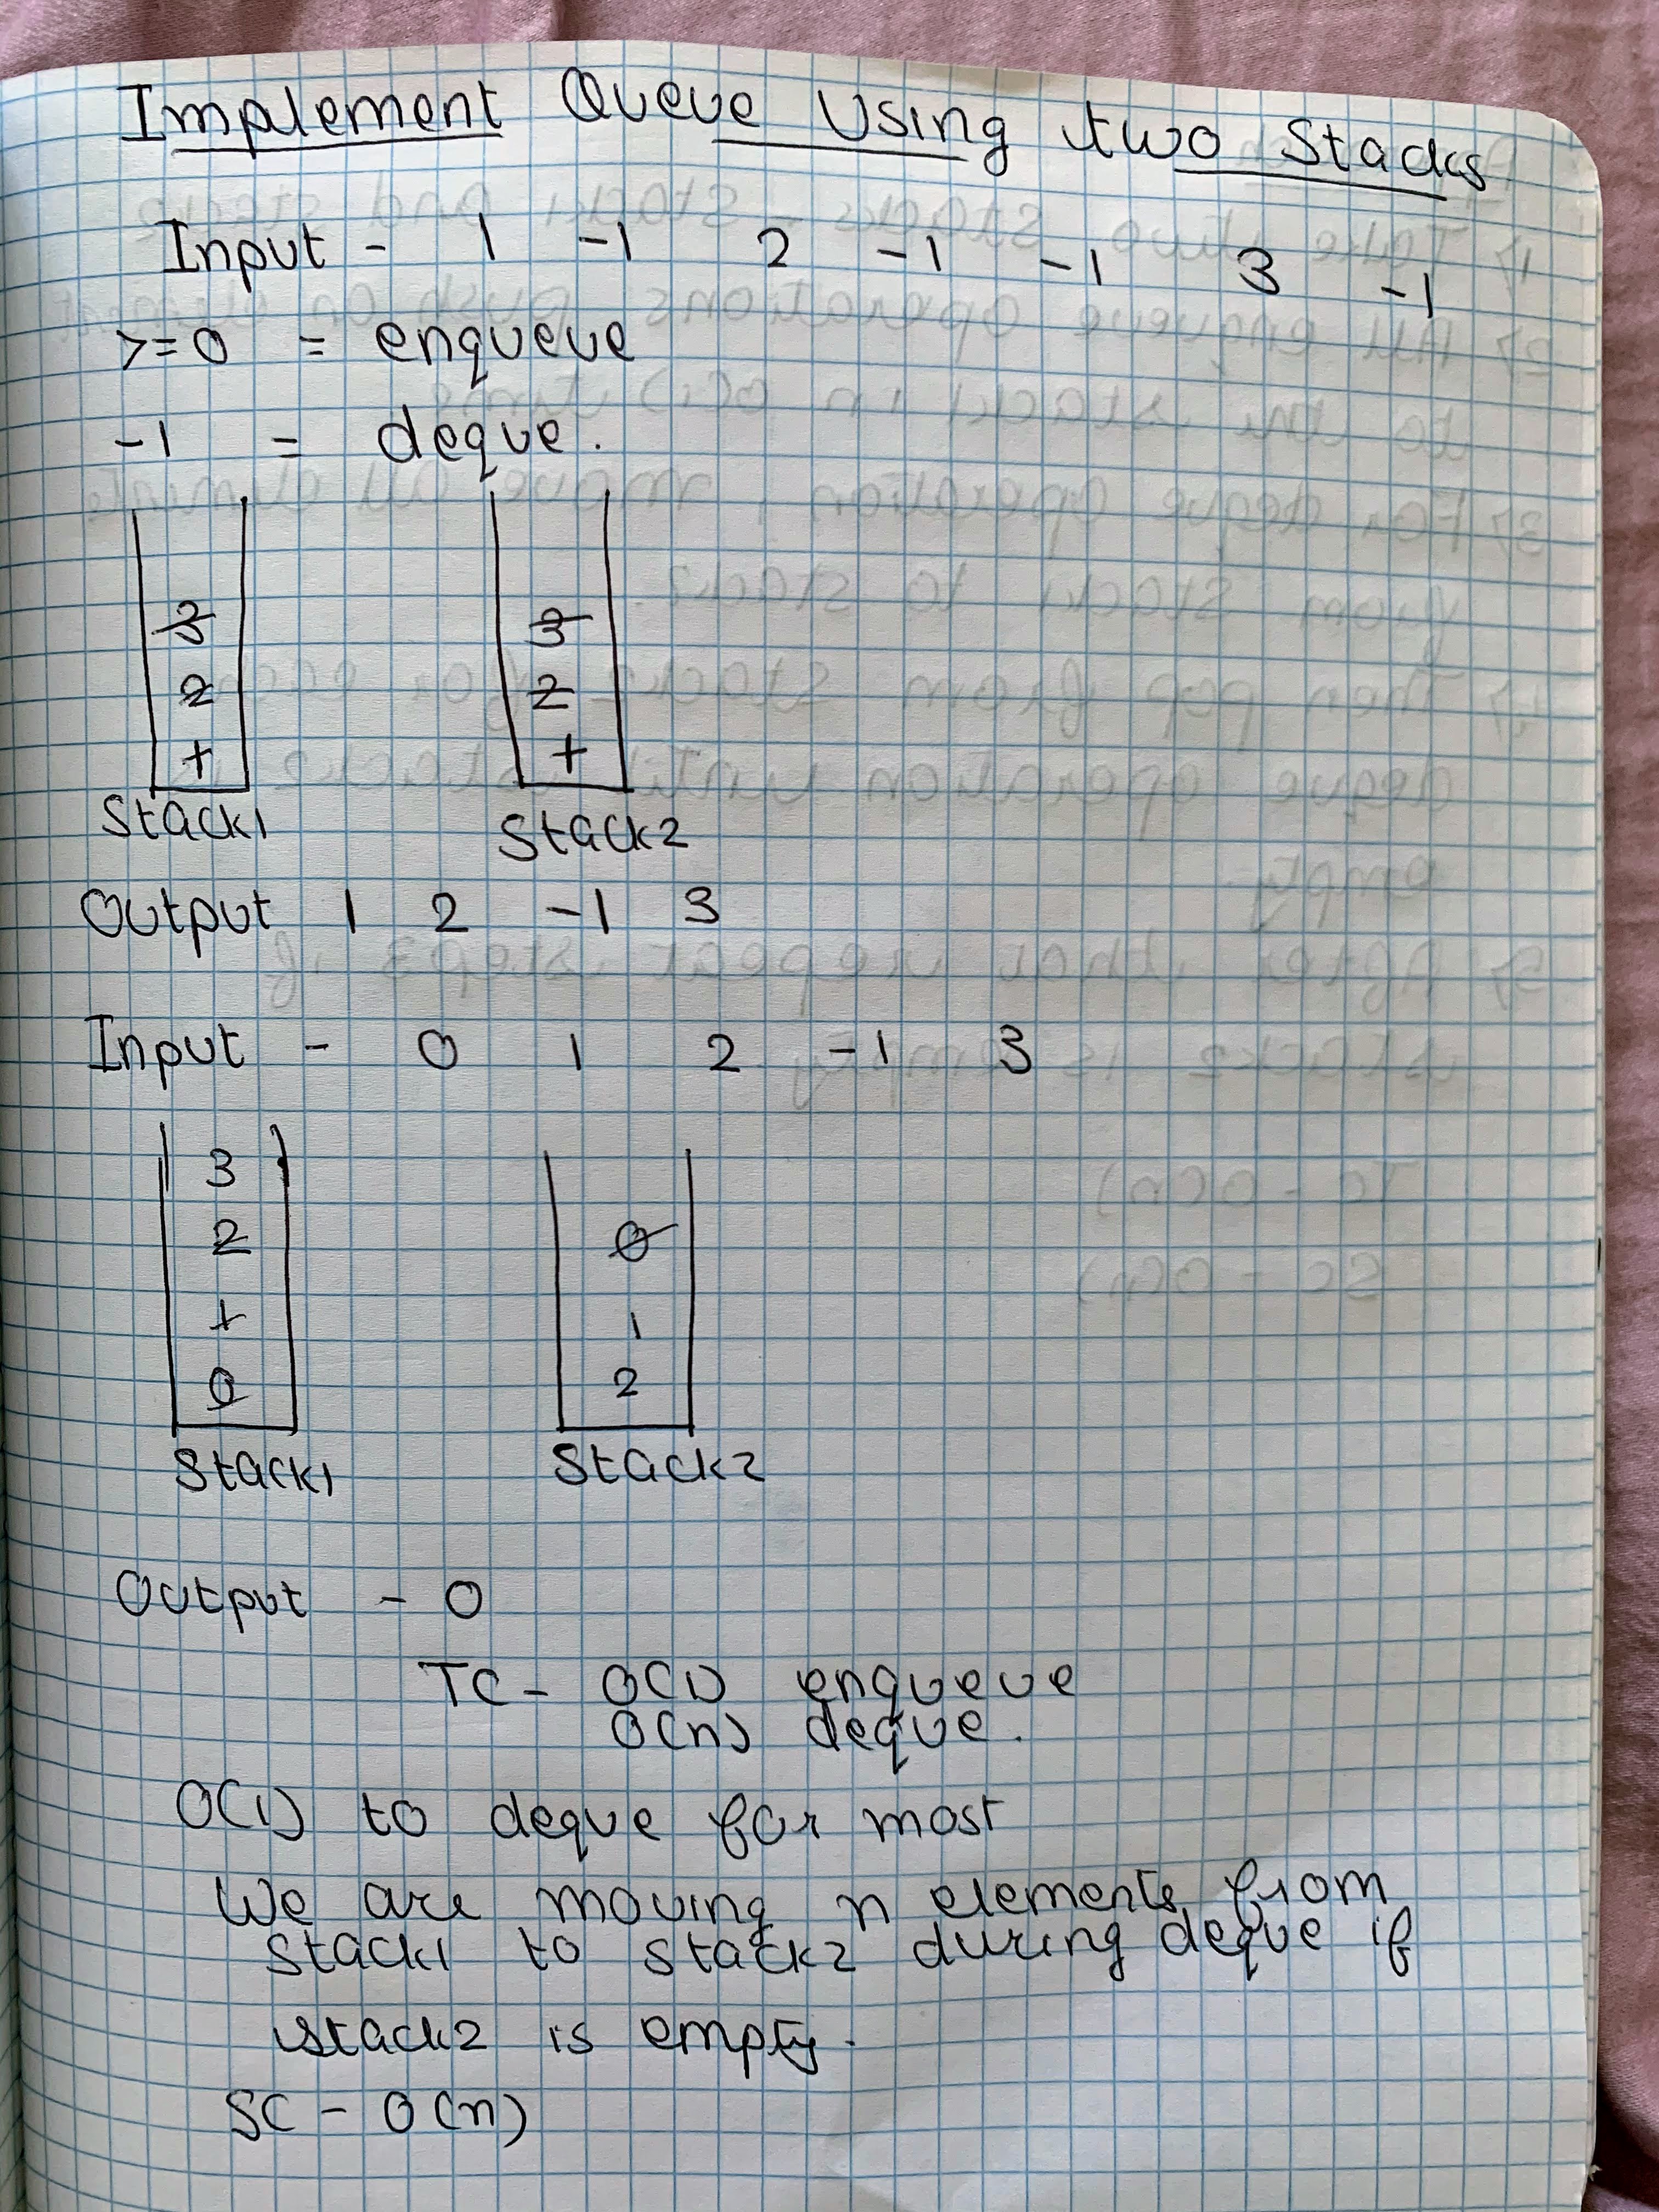 Implement Queue Using two Stacks
Input - 1 -1 2 -1 -1 3 -1
>=0 = enqueue
-1 = deque.
3 3
2 2
1 1
Stack1 Stack2
Output 1 2 -1 3
Input - 0 1 2 -1 3
3
2 0
1 1
0 2
Stack1 Stack2
Output - 0
TC - O(1) enqueue
O(n) deque.
O(1) to deque for most
We are moving n elements from
stack1 to stack2 during deque if
stack2 is empty.
SC - O(n)